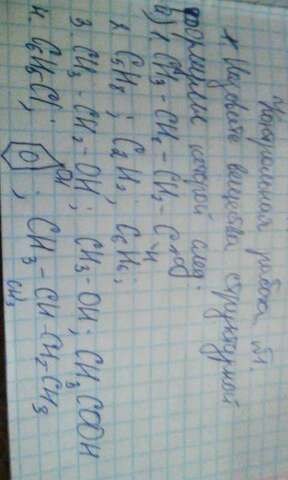 Контрольная работа №1.
1. Назовите вещества структурной
формулы которой след:
а) 1 CH3-CH2-CH2-C
H
2. C5H8; C2H2; C6H6;
3. CH3-CH2-OH; CH3-OH; CH3COOH
OH
4 C6H5Cl; O; CH3-CH-CH2-CH3
CH3